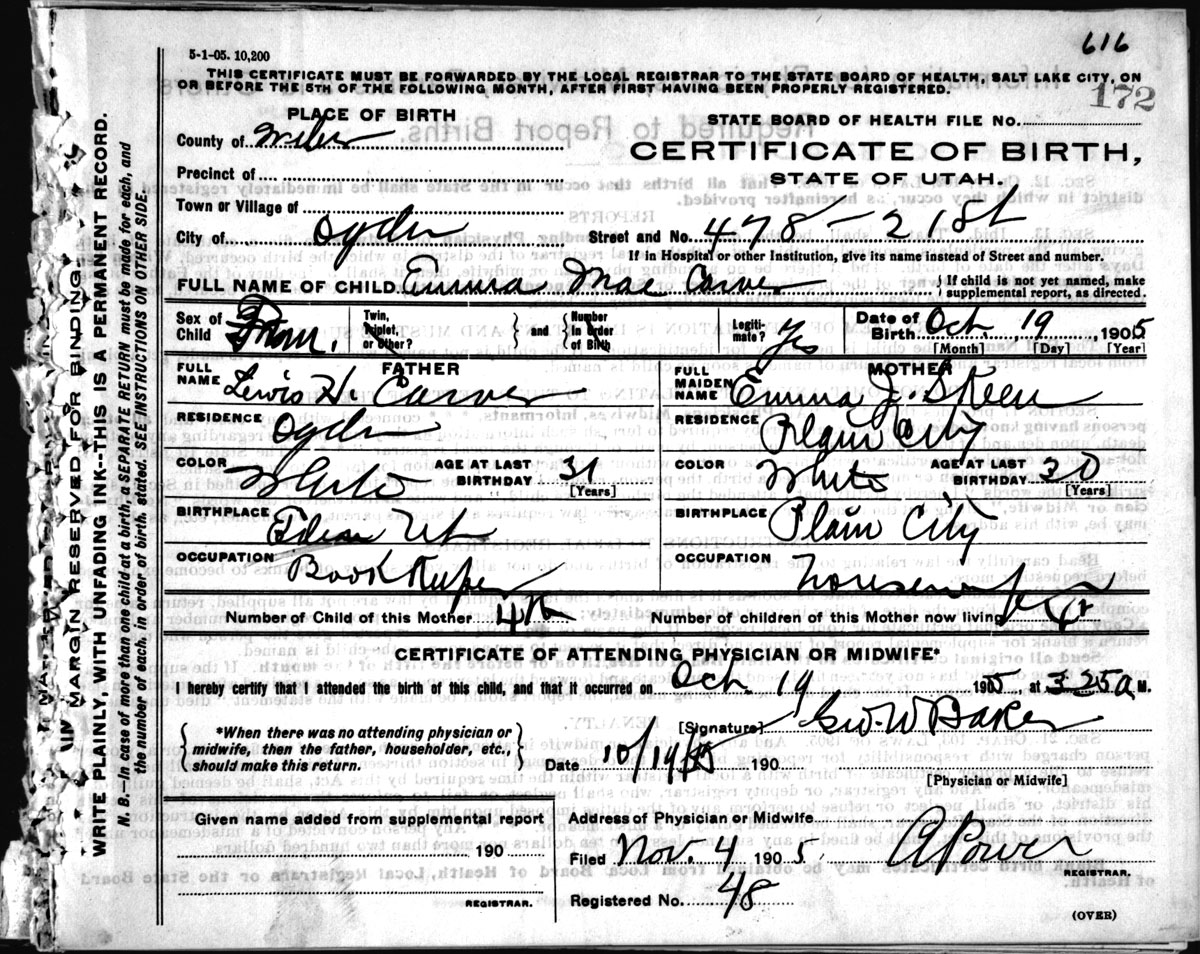 616
5-1-05. 10,200
THIS CERTIFICATE MUST BE FORWARDED BY THE LOCAL REGISTRAR TO THE STATE BOARD OF HEALTH, SALT LAKE CITY, ON
OR BEFORE THE 5TH OF THE FOLLOWING MONTH, AFTER FIRST HAVING BEEN PROPERLY REGISTERED.
172
PLACE OF BIRTH
STATE BOARD OF HEALTH FILE NO.
County of Weber
CERTIFICATE OF BIRTH,
Precinct of
STATE OF UTAH.
Town or Village of
City of Ogden Street and No. 478 - 21st
If in Hospital or other Institution, give its name instead of Street and number.
FULL NAME OF CHILD Emma Mae Carver { If child is not yet named, make
supplemental report, as directed.
Sex of Child Fem. Twin, Triplet, or Other? } and { Number in Order of Birth Legitimate? Yes Date of Birth Oct 19, 1905
[Month] [Day] [Year]
FATHER MOTHER
FULL NAME Lewis H. Carver FULL MAIDEN NAME Emma J. Skeen
RESIDENCE Ogden RESIDENCE Plain City
COLOR White AGE AT LAST BIRTHDAY 31 [Years] COLOR White AGE AT LAST BIRTHDAY 30 [Years]
BIRTHPLACE Ut BIRTHPLACE Plain City
OCCUPATION Book Keeper OCCUPATION housewife
Number of Child of this Mother 4th Number of children of this Mother now living 4
CERTIFICATE OF ATTENDING PHYSICIAN OR MIDWIFE*
I hereby certify that I attended the birth of this child, and that it occurred on Oct. 19 1905, at 3 25 a M.
*When there was no attending physician or
midwife, then the father, householder, etc.,
should make this return.
[Signature] Geo. W Baker
Date 10/19/05 190
[Physician or Midwife]
Given name added from supplemental report
190
REGISTRAR.
Address of Physician or Midwife
Filed Nov. 4 1905
REGISTRAR.
Registered No. 48
(OVER)
MARGIN RESERVED FOR BINDING.
WRITE PLAINLY, WITH UNFADING INK--THIS IS A PERMANENT RECORD.
N. B.--In case of more than one child at a birth, a SEPARATE RETURN must be made for each, and
the number of each, in order of birth, stated. SEE INSTRUCTIONS ON OTHER SIDE.